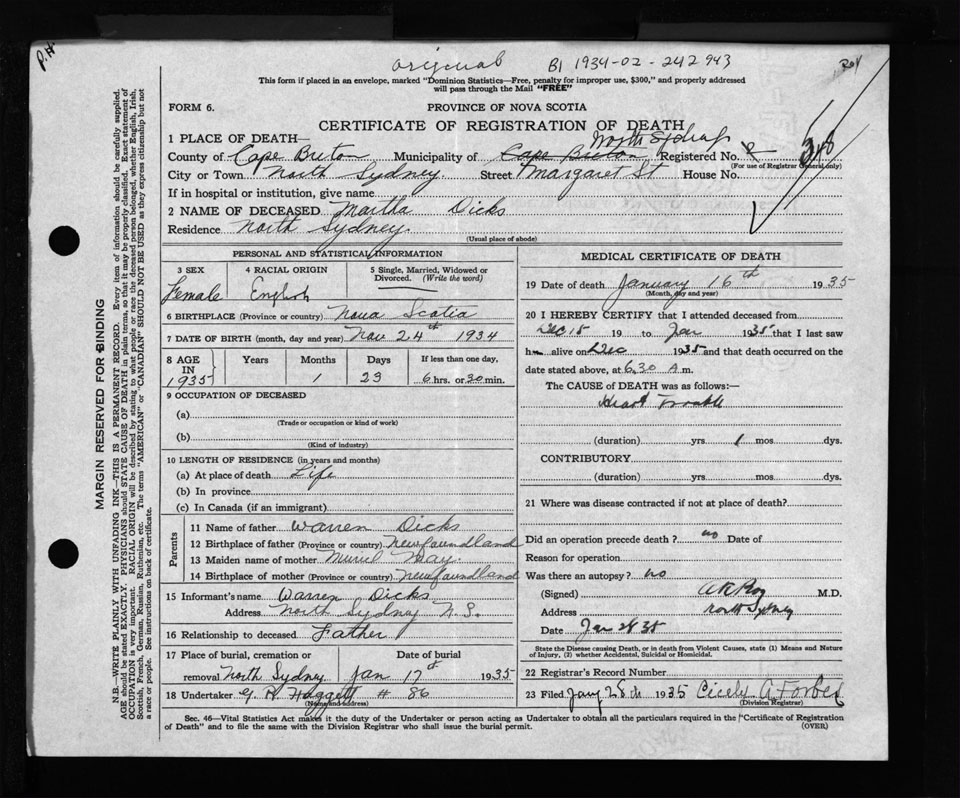 P.H
Original B1 1934-02-242943
This form if placed in an envelope, marked "Dominion Statistics—Free, penalty for improper use, $300," and properly addressed
will pass through the Mail "FREE"
FORM 6. PROVINCE OF NOVA SCOTIA
CERTIFICATE OF REGISTRATION OF DEATH
1 PLACE OF DEATH— North Sydney
County of Cape Breton Municipality of Cape Breton Registered No.
(For use of Registrar General only)
City or Town North Sydney Street Margaret St House No.
If in hospital or institution, give name
2 NAME OF DECEASED Martha Dicks
Residence North Sydney
(Usual place of abode)
PERSONAL AND STATISTICAL INFORMATION
3 SEX 4 RACIAL ORIGIN 5 Single, Married, Widowed or
Divorced. (Write the word)
Female English
6 BIRTHPLACE (Province or country) Nova Scotia
7 DATE OF BIRTH (month, day and year) Nov 24th 1934
8 AGE Years Months Days If less than one day,
IN
1935 1 23 6 hrs. or 30 min.
9 OCCUPATION OF DECEASED
(a)
(Trade or occupation or kind of work)
(b)
(Kind of industry)
10 LENGTH OF RESIDENCE (in years and months)
(a) At place of death Life
(b) In province
(c) In Canada (if an immigrant)
Parents
11 Name of father Warren Dicks
12 Birthplace of father (Province or country) Newfoundland
13 Maiden name of mother Muriel May
14 Birthplace of mother (Province or country) Newfoundland
15 Informant's name Warren Dicks
Address North Sydney N.S.
16 Relationship to deceased Father
17 Place of burial, cremation or Date of burial
removal North Sydney Jan 17th 1935
18 Undertaker G. H. Haggett # 86
(Name and address)
MEDICAL CERTIFICATE OF DEATH
19 Date of death January 16th 1935
(Month, day and year)
20 I HEREBY CERTIFY that I attended deceased from
Dec 15 19 to Jan 1935 that I last saw
h alive on Dec 1935 and that death occurred on the
date stated above, at 6.30 A m.
The CAUSE of DEATH was as follows:—
Heart Trouble
(duration) yrs 1 mos. dys.
CONTRIBUTORY
(duration) yrs. mos. dys.
21 Where was disease contracted if not at place of death?
Did an operation precede death? no Date of
Reason for operation
Was there an autopsy? no
(Signed) M.D.
Address North Sydney
Date Jan 28 35
State the Disease causing Death, or in death from Violent Causes, state (1) Means and Nature
of Injury, (2) whether Accidental, Suicidal or Homicidal.
22 Registrar's Record Number
23 Filed Jany 28th 1935 Cicely A. Forbes
(Division Registrar)
Sec. 46—Vital Statistics Act makes it the duty of the Undertaker or person acting as Undertaker to obtain all the particulars required in the "Certificate of Registration
of Death" and to file the same with the Division Registrar who shall issue the burial permit. (OVER)
MARGIN RESERVED FOR BINDING
N.B.—WRITE PLAINLY WITH UNFADING INK—THIS IS A PERMANENT RECORD. Every item of information should be carefully supplied.
AGE should be stated EXACTLY. PHYSICIANS should STATE CAUSE OF DEATH in plain terms, so that it may be properly classified. Exact statement of
OCCUPATION is very important. RACIAL ORIGIN will be described by stating to what people or race the deceased person belonged, whether English, Irish,
Scottish, French, German, Russian, Ruthenian, etc. The terms "AMERICAN" or "CANADIAN" SHOULD NOT BE USED as they express citizenship but not
a race or people. See instructions on back of certificate.